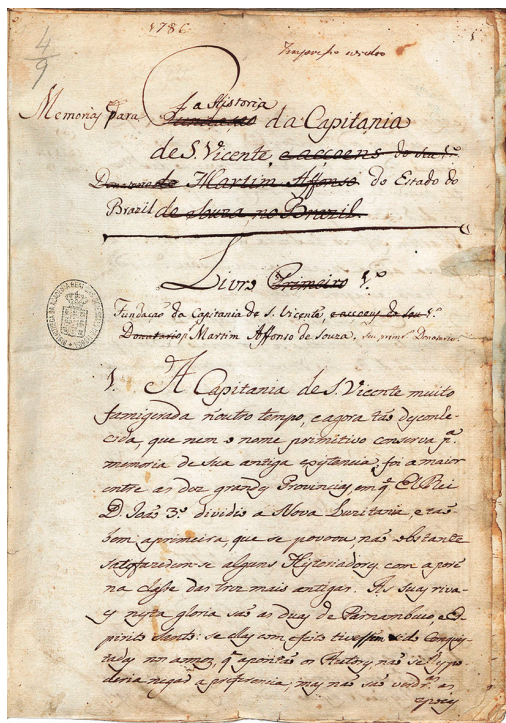 4
9
1786
Impresso
1
a Historia
Memorias para Fundação da Capitania
de S. Vicente, e acçoens do seu 1.º
Donatario de Martim Affonso do Estado do
Brazil de Souza no Brazil.
Livro Primeiro 1.º
Fundação da Capitania de S. Vicente, e acçoens do seu 1.º
Donatario Martim Affonso de Souza, seu prim.º Donatario.
1. A Capitania de S. Vicente muito
famigerada n'outro tempo, e agora tão desconhe-
cida, que nem o nome primitivo conserva p.ª
memoria de sua antiga existencia, foi a maior
entre as doz grandes Provincias, em q̃ El Rei
D. João 3.º dividio a Nova Luzitania, e tão
bem a primeira, que se povoou não obstante
satisfazerem-se alguns Historiadores com a porẽ
na classe das tres mais antigas. As suas riva-
es nesta gloria são as duas de Parnambuco, e Es-
pirito Santo: se elas com efeito tivessem sido Conquis-
tadas nos annos, q̃ apontão os Autores, não se lhes po-
deria negar a preferencia, mas não são verdr.as as
epocas